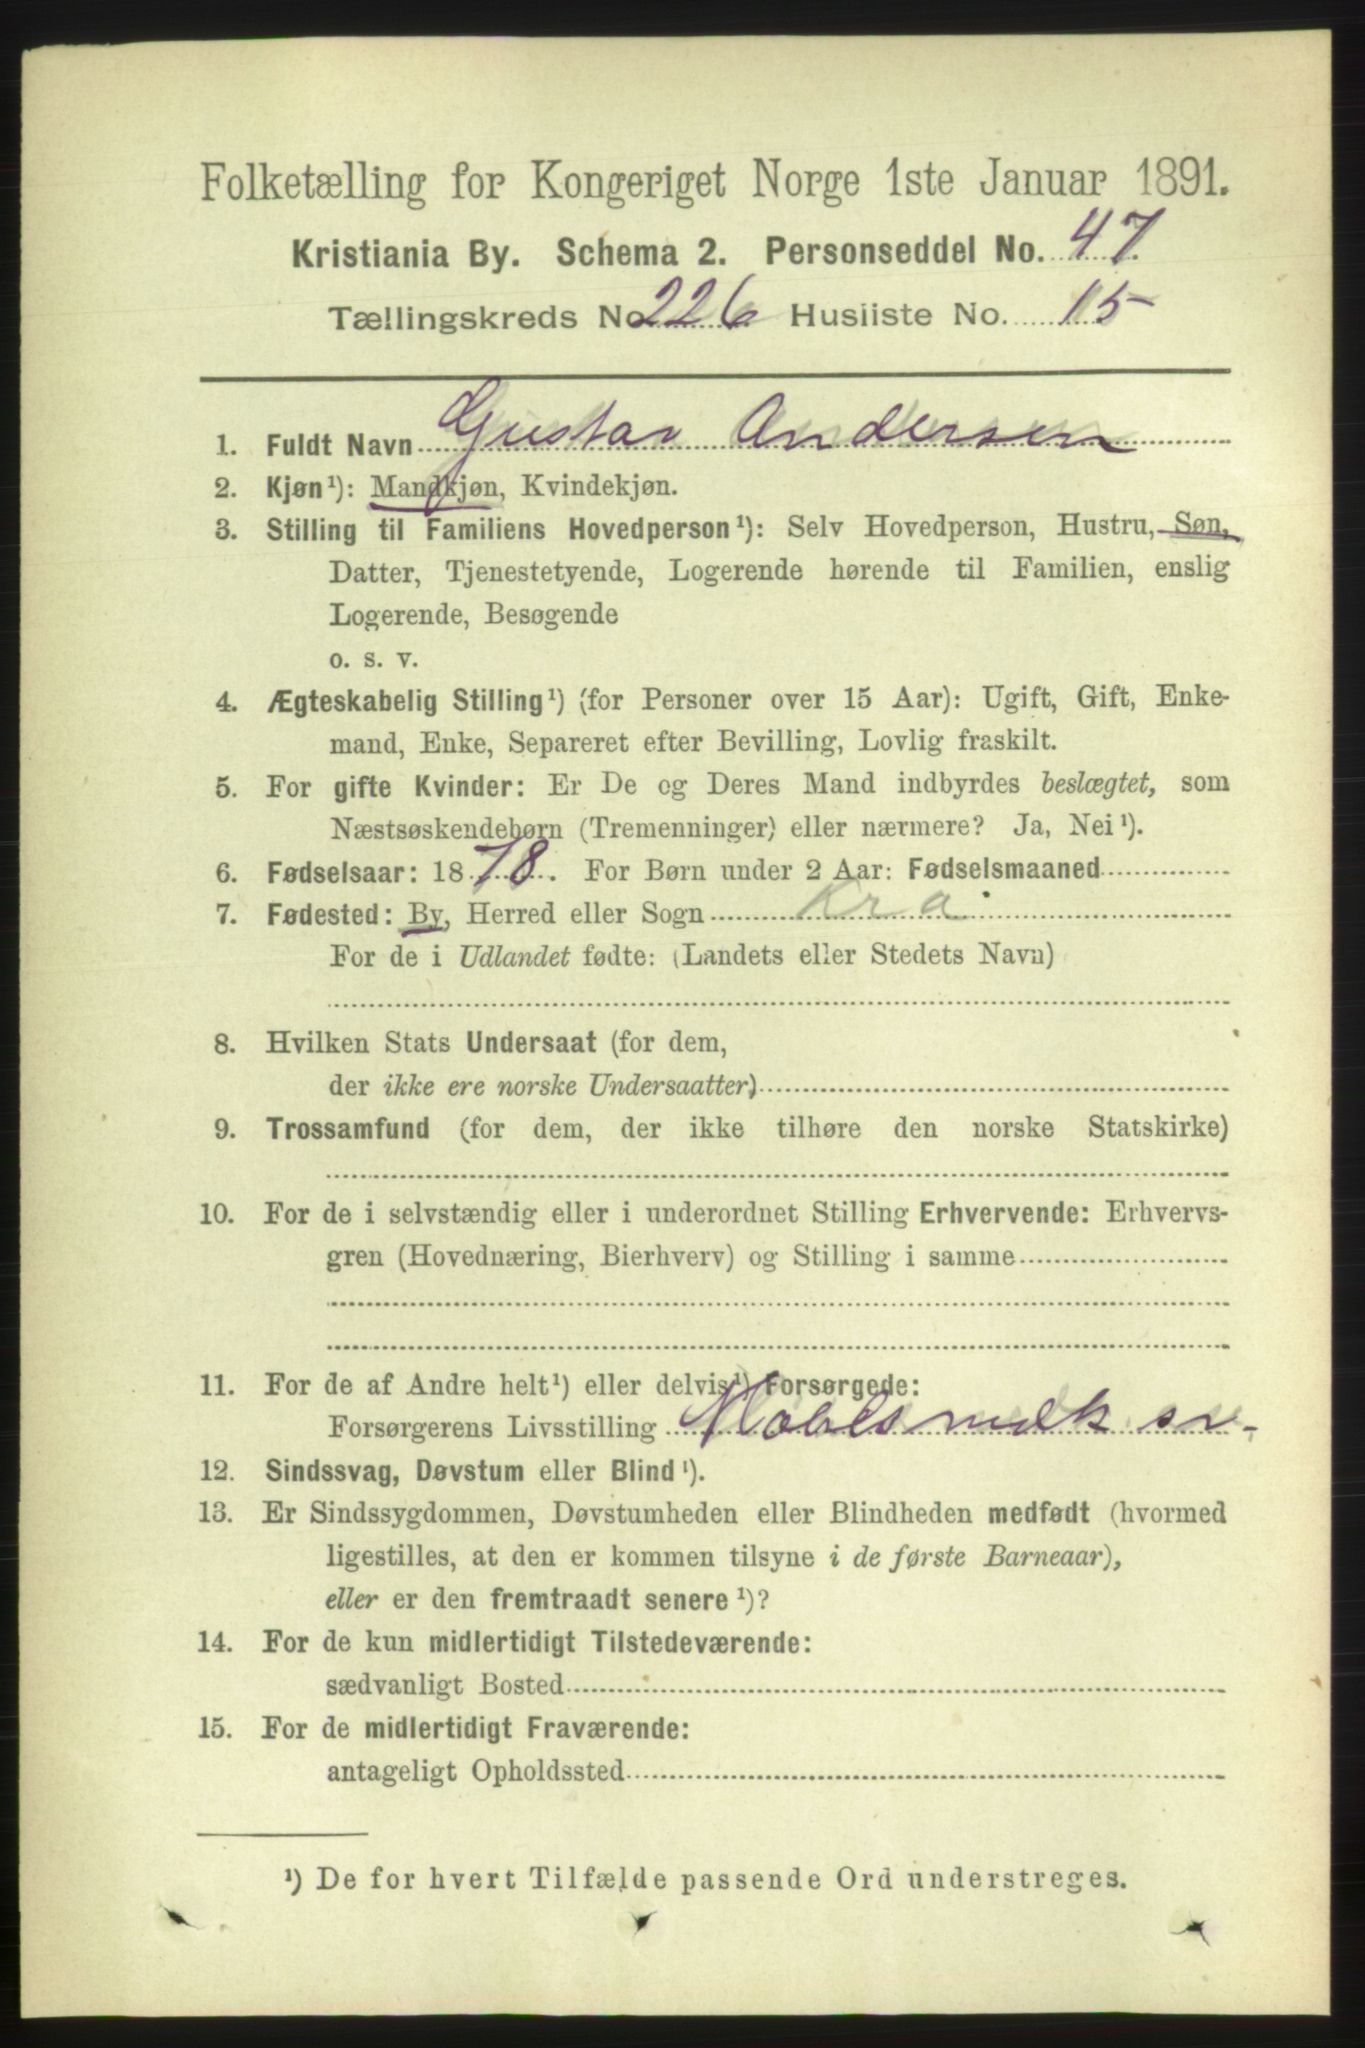 Folketælling for Kongeriget Norge 1ste Januar 1891.
Kristiania By. Schema 2. Personseddel No. 47
Tællingskreds No 226 Husliste No. 15
1. Fuldt Navn Gustav Andersen
2. Kjøn¹): Mandkjøn, Kvindekjøn.
3. Stilling til Familiens Hovedperson¹): Selv Hovedperson, Hustru, Søn,
Datter, Tjenestetyende, Logerende hørende til Familien, enslig
Logerende, Besøgende
o. s. v.
4. Ægteskabelig Stilling¹) (for Personer over 15 Aar): Ugift, Gift, Enke-
mand, Enke, Separeret efter Bevilling, Lovlig fraskilt.
5. For gifte Kvinder: Er De og Deres Mand indbyrdes beslægtet, som
Næstsøskendebørn (Tremenninger) eller nærmere? Ja, Nei¹).
6. Fødselsaar: 1878. For Børn under 2 Aar: Fødselsmaaned
7. Fødested: By, Herred eller Sogn Kra
For de i Udlandet fødte: (Landets eller Stedets Navn)
8. Hvilken Stats Undersaat (for dem,
der ikke ere norske Undersaatter)
9. Trossamfund (for dem, der ikke tilhøre den norske Statskirke)
10. For de i selvstændig eller i underordnet Stilling Erhvervende: Erhvervs-
gren (Hovednæring, Bierhverv) og Stilling i samme
11. For de af Andre helt¹) eller delvis¹) Forsørgede:
Forsørgerens Livsstilling
12. Sindssvag, Døvstum eller Blind¹).
13. Er Sindssygdommen, Døvstumheden eller Blindheden medfødt (hvormed
ligestilles, at den er kommen tilsyne i de første Barneaar),
eller er den fremtraadt senere¹)?
14. For de kun midlertidigt Tilstedeværende:
sædvanligt Bosted
15. For de midlertidigt Fraværende:
antageligt Opholdssted
¹) De for hvert Tilfælde passende Ord understreges.